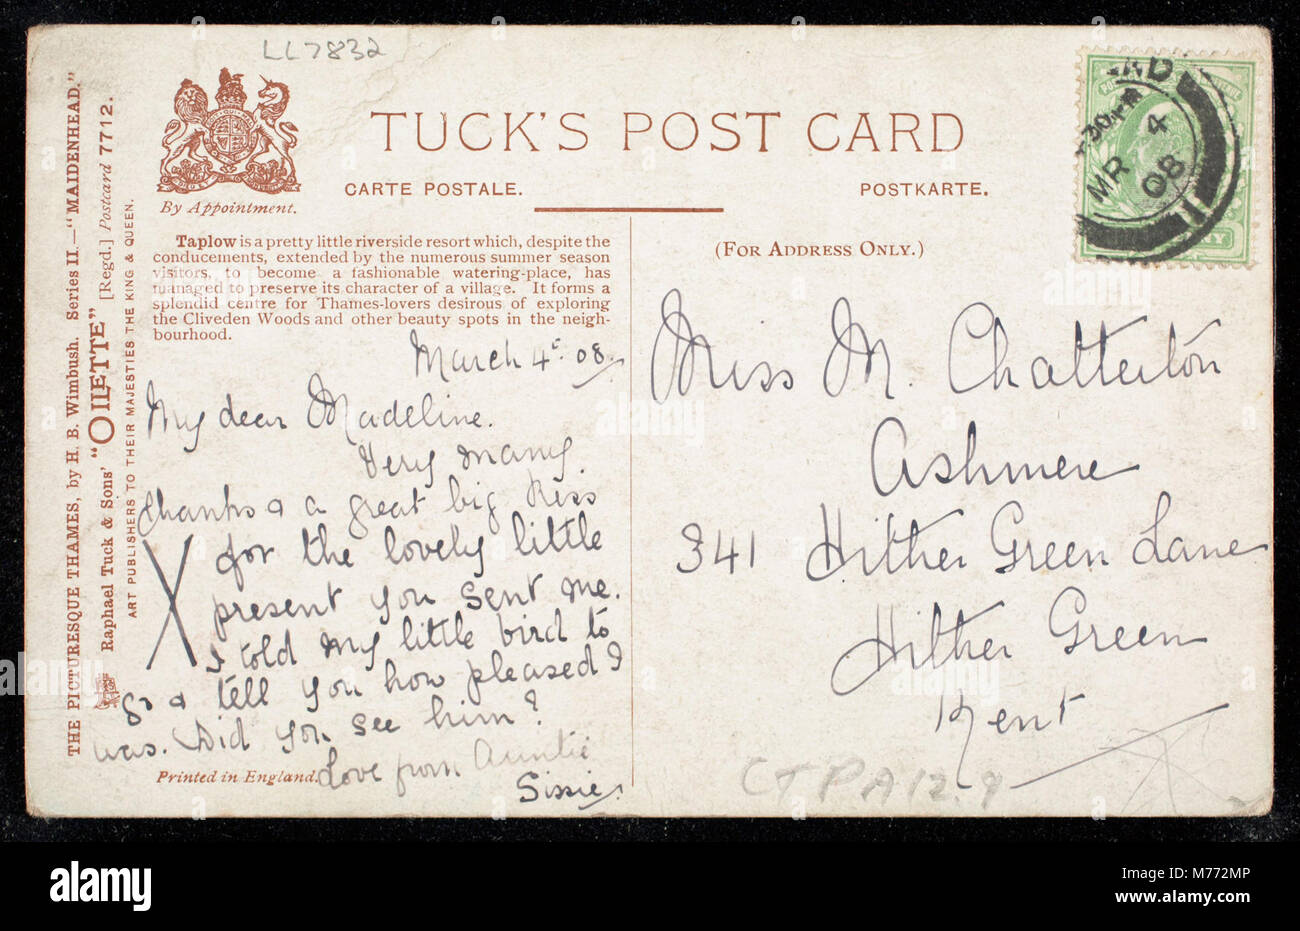 LL7832
TUCK'S POST CARD
CARTE POSTALE.
POSTKARTE.
By Appointment.
(FOR ADDRESS ONLY.)
THE PICTURESQUE THAMES, by H. B. Wimbush. Series II.—"MAIDENHEAD."
Raphael Tuck & Sons' "OILETTE" [Regd.] Postcard 7712.
ART PUBLISHERS TO THEIR MAJESTIES THE KING & QUEEN.
Taplow is a pretty little riverside resort which, despite the
conducements, extended by the numerous summer season
visitors, to become a fashionable watering-place, has
managed to preserve its character of a village. It forms a
splendid centre for Thames-lovers desirous of exploring
the Cliveden Woods and other beauty spots in the neigh-
bourhood.
March 4 08
My dear Madeline.
Very many
thanks & a great big kiss
X for the lovely little
present you sent me.
I told my little bird to
go & tell you how pleased I
was. Did you see him?
Love from Auntie
Sissie
Printed in England.
Miss M. Chatterton
Ashmere
341 Hither Green Lane
Hither Green
Kent
EAD
30PM
MR 4
08
NY
CTPA12.9
alamy
a
alamy
a
a
alamy
Image ID: M772MP
www.alamy.com